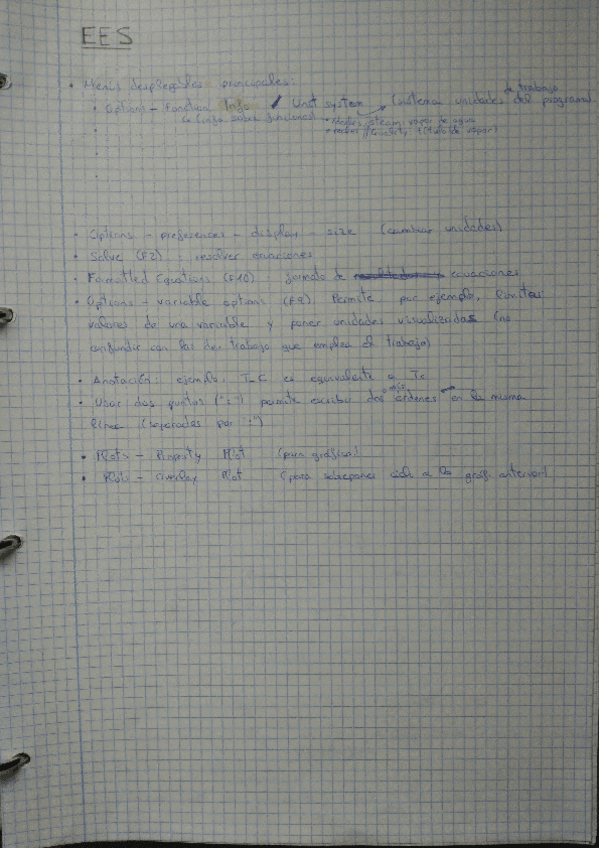 EES
• Menús desplegables principales:
• Options - Function Info / Unit system (sistema unidades de trabajo del programa)
(info sobre funciones)
steam: vapor de agua
(título de vapor)
• Options - preferences - display - size (cambiar unidades)
• Solve (F2) : resolver ecuaciones
• Formatted Equations (F10) : formato de ecuaciones
• Options - variable options (F9) Permite, por ejemplo, limitar
valores de una variable y poner unidades visualizadas (no
confundir con las de trabajo que emplea el trabajo)
• Anotación: ejemplo: T_C es equivalente a Tc
• Usar dos puntos (":") permite escribir dos o más órdenes en la misma
línea (separadas por ":")
• Plots - Property Plot (para gráficas)
• Plots - Overlay Plot (para sobreponer a la gráf. anterior)